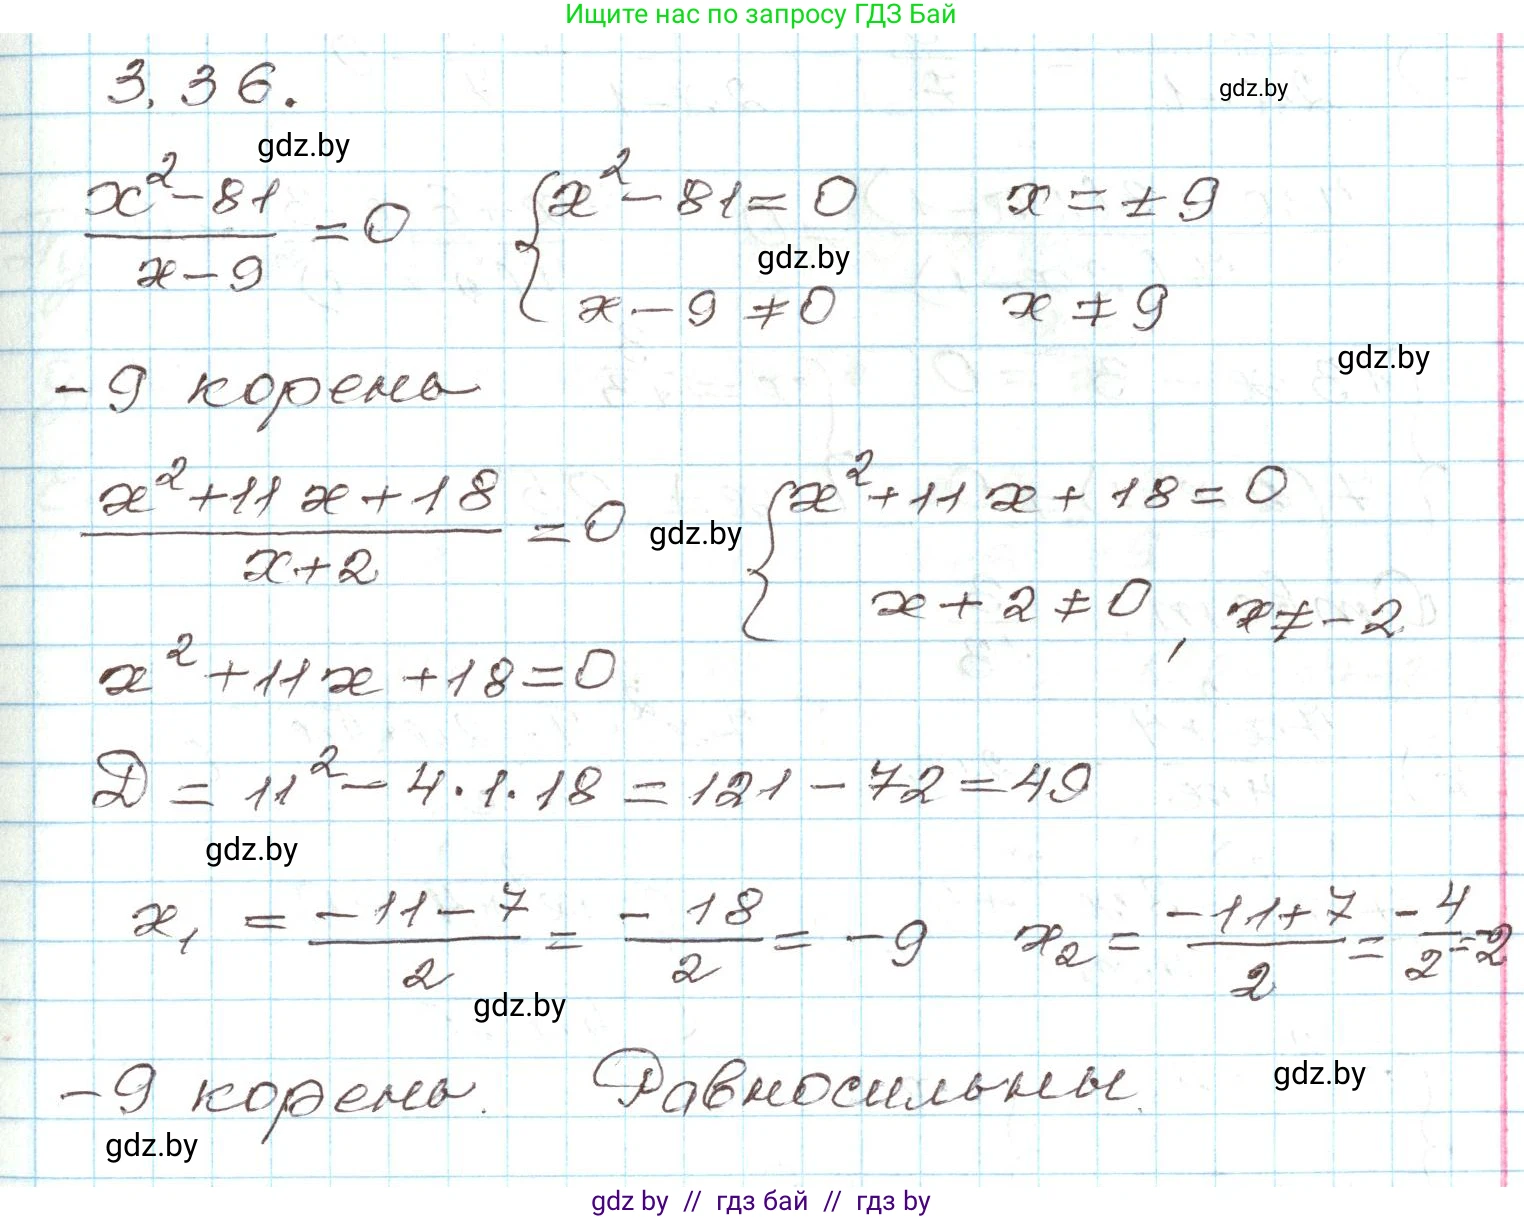 Ищите нас по запросу ГДЗ Бай
3.36.
gdz.by
gdz.by
(x² - 81)/(x - 9) = 0 { x² - 81 = 0 x = ±9
gdz.by
x - 9 ≠ 0 x ≠ 9
gdz.by
-9 корень
(x² + 11x + 18)/(x + 2) = 0 { x² + 11x + 18 = 0
gdz.by
x + 2 ≠ 0, x ≠ -2
x² + 11x + 18 = 0
D = 11² - 4·1·18 = 121 - 72 = 49
gdz.by
x₁ = (-11 - 7)/2 = -18/2 = -9 x₂ = (-11 + 7)/2 = -4/2 = -2
gdz.by
-9 корень. Равносильны.
gdz.by
gdz.by
gdz by // гдз бай // гдз by